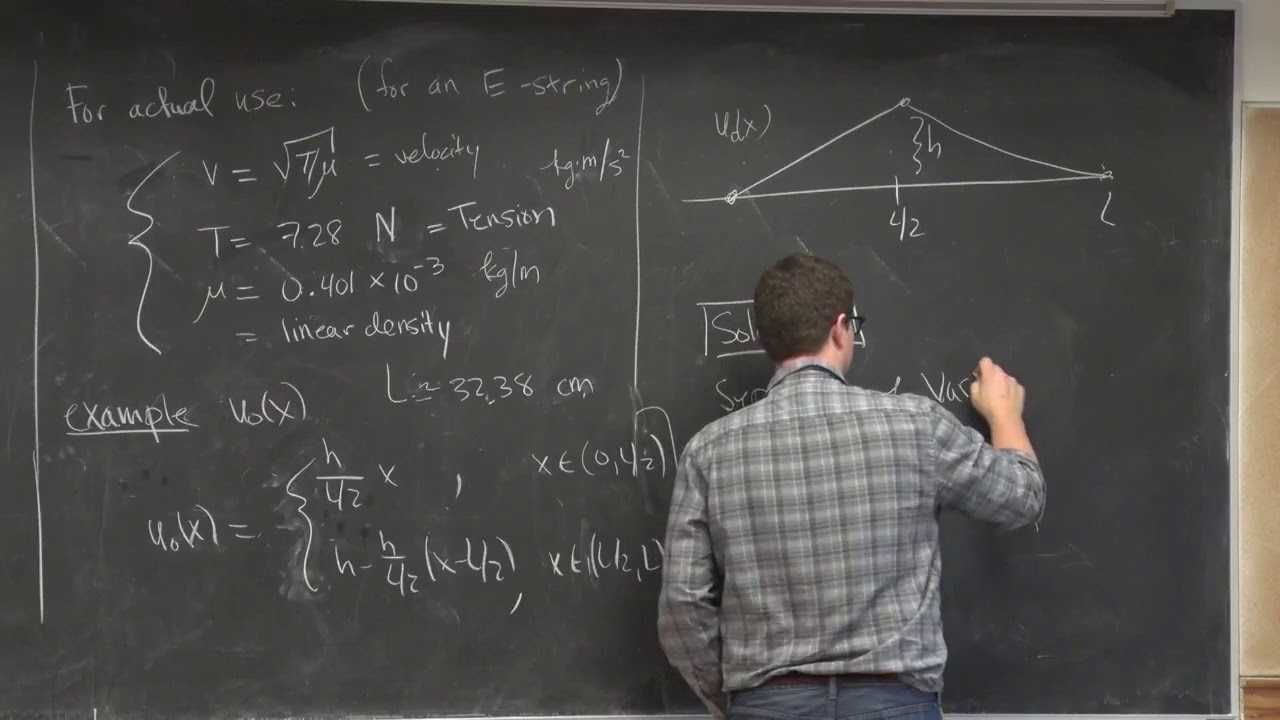 For actual use: (for an E-string)
v = √T/μ = velocity kg·m/s²
T = 7.28 N = Tension
μ = 0.401 × 10⁻³ kg/m
= linear density
L ≈ 32.38 cm
example u₀(x)
u₀(x) = { h/L/2 x , x ∈ (0, L/2)
h - h/L/2 (x - L/2) , x ∈ (L/2, L
u₀(x)
h
L/2
L
Sol
Va